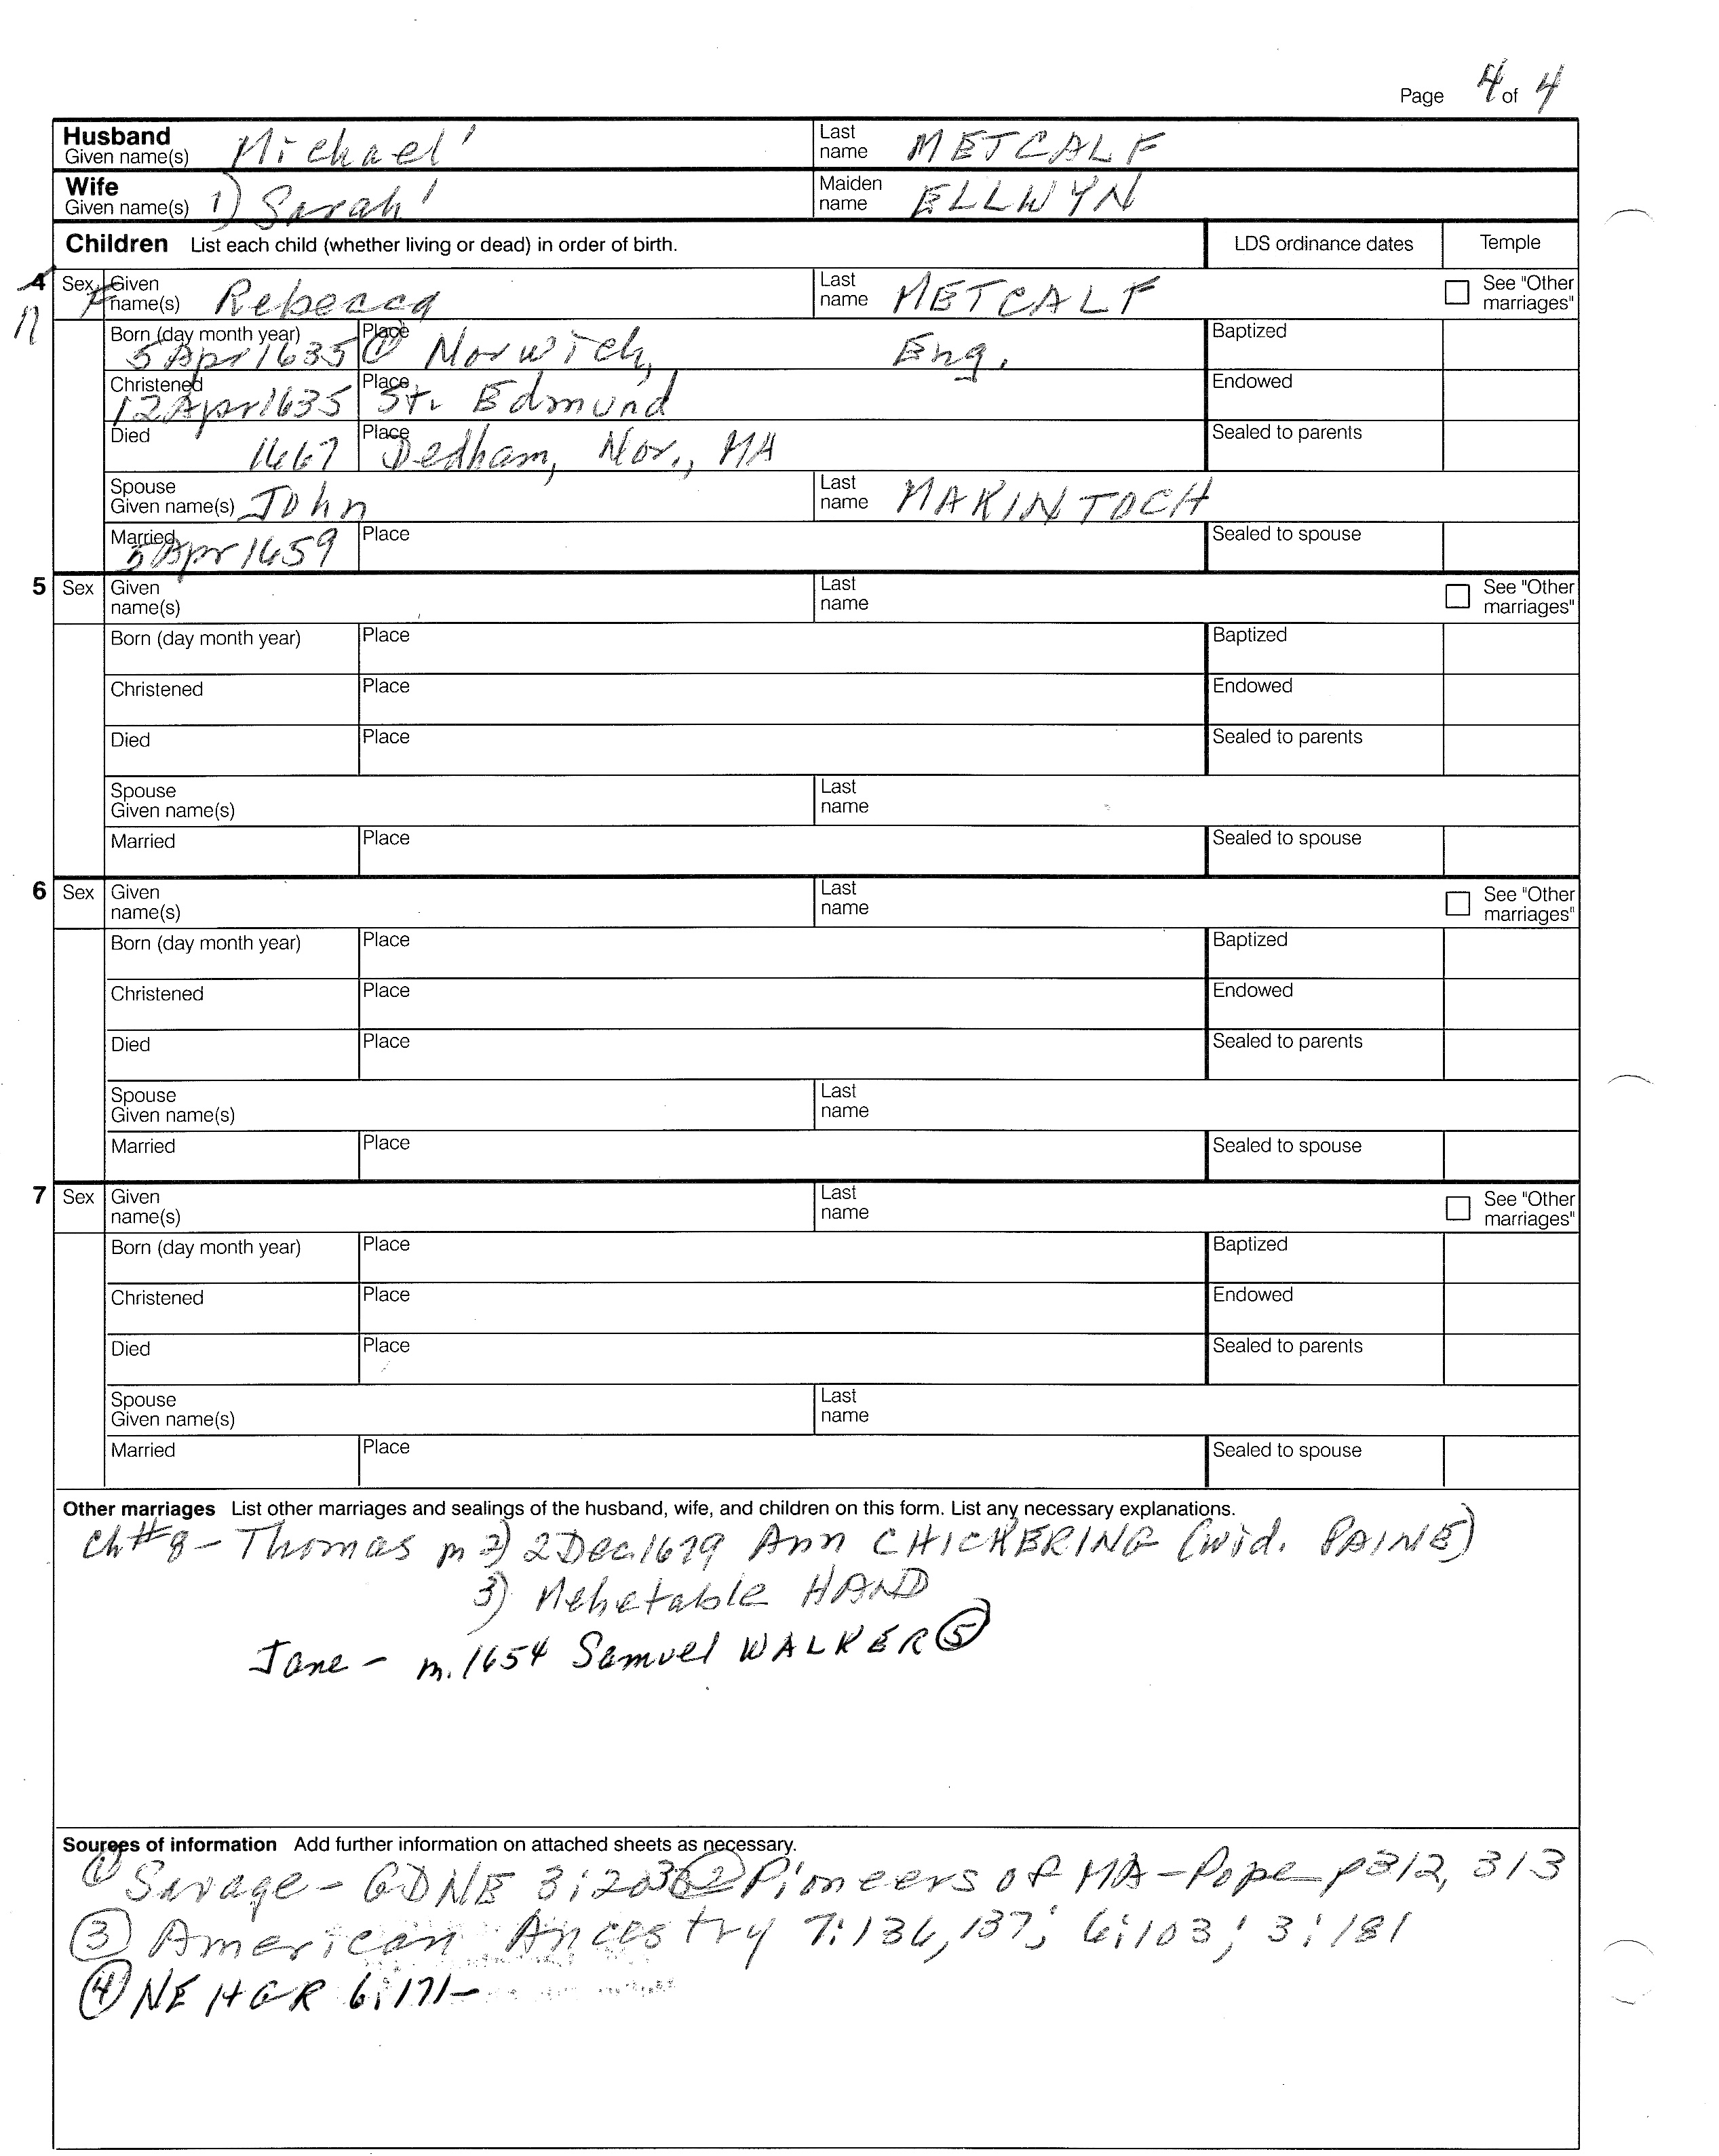 Page 4 of 4
Husband Given name(s) Michael' Last name METCALF
Wife Given name(s) 1) Sarah' Maiden name ELLWYN
Children List each child (whether living or dead) in order of birth. LDS ordinance dates Temple
4 11 Sex F Given name(s) Rebecca Last name METCALF See "Other marriages"
Born (day month year) 5 Apr 1635 Place ① Norwich, Eng. Baptized
Christened 12 Apr 1635 Place St. Edmund Endowed
Died 1667 Place Dedham, Nor., MA Sealed to parents
Spouse Given name(s) John Last name MAKINTOCH
Married 5 Apr 1659 Place Sealed to spouse
5 Sex Given name(s) Last name See "Other marriages"
Born (day month year) Place Baptized
Christened Place Endowed
Died Place Sealed to parents
Spouse Given name(s) Last name
Married Place Sealed to spouse
6 Sex Given name(s) Last name See "Other marriages"
Born (day month year) Place Baptized
Christened Place Endowed
Died Place Sealed to parents
Spouse Given name(s) Last name
Married Place Sealed to spouse
7 Sex Given name(s) Last name See "Other marriages"
Born (day month year) Place Baptized
Christened Place Endowed
Died Place Sealed to parents
Spouse Given name(s) Last name
Married Place Sealed to spouse
Other marriages List other marriages and sealings of the husband, wife, and children on this form. List any necessary explanations.
Ch#8 - Thomas m 2) 2 Dec 1679 Ann CHICKERING (wid. PAINE)
3) Mehetable HAND
Jane - m. 1654 Samuel WALKER ⑤
Sources of information Add further information on attached sheets as necessary.
① Savage - GDNE 3:203 ② Pioneers of MA - Pope p312, 313
③ American Ancestry 7:136, 137; 6:103; 3:181
④ NEHGR 6:171-